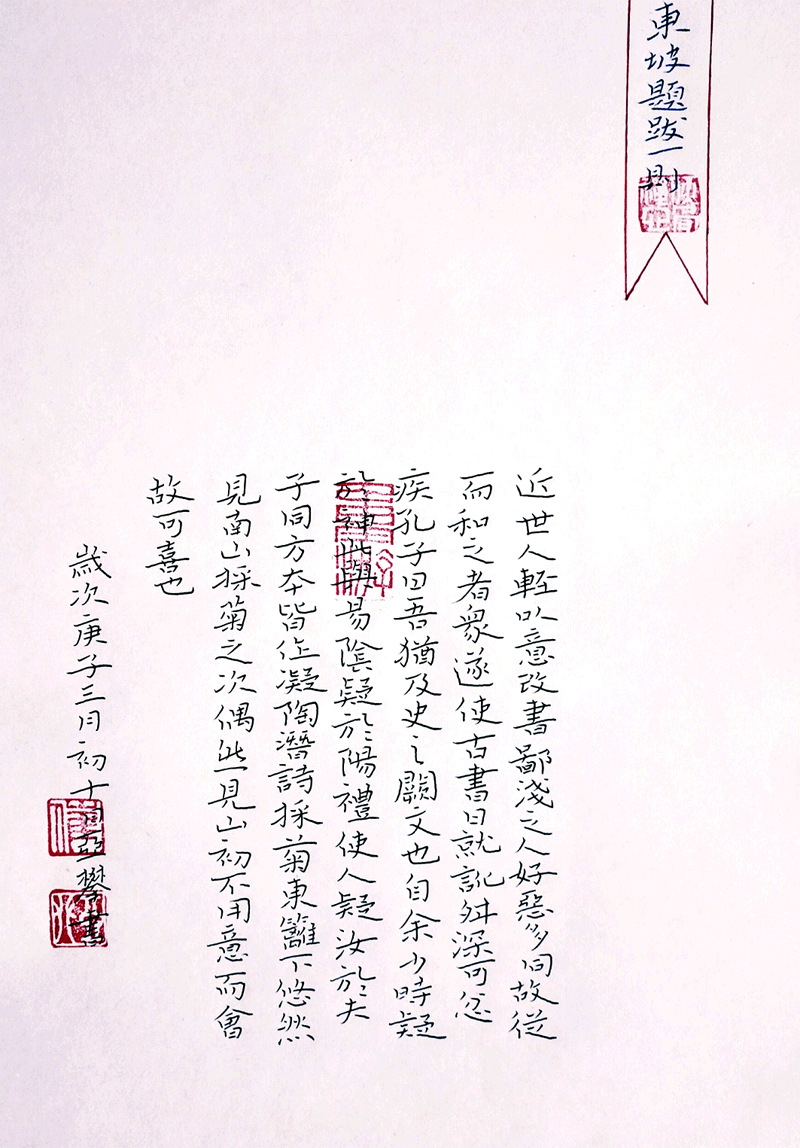 東坡題跋一則
近世人輕以意改書鄙淺之人好惡多同故從
而和之者衆遂使古書日就訛舛深可忿
疾孔子曰吾猶及史之闕文也自余少時疑
於神此與易陰疑於陽禮使人疑汝於夫
子同方本皆作凝陶潛詩採菊東籬下悠然
見南山採菊之次偶然見山初不用意而會
故可喜也
歲次庚子三月初十日亞攀書